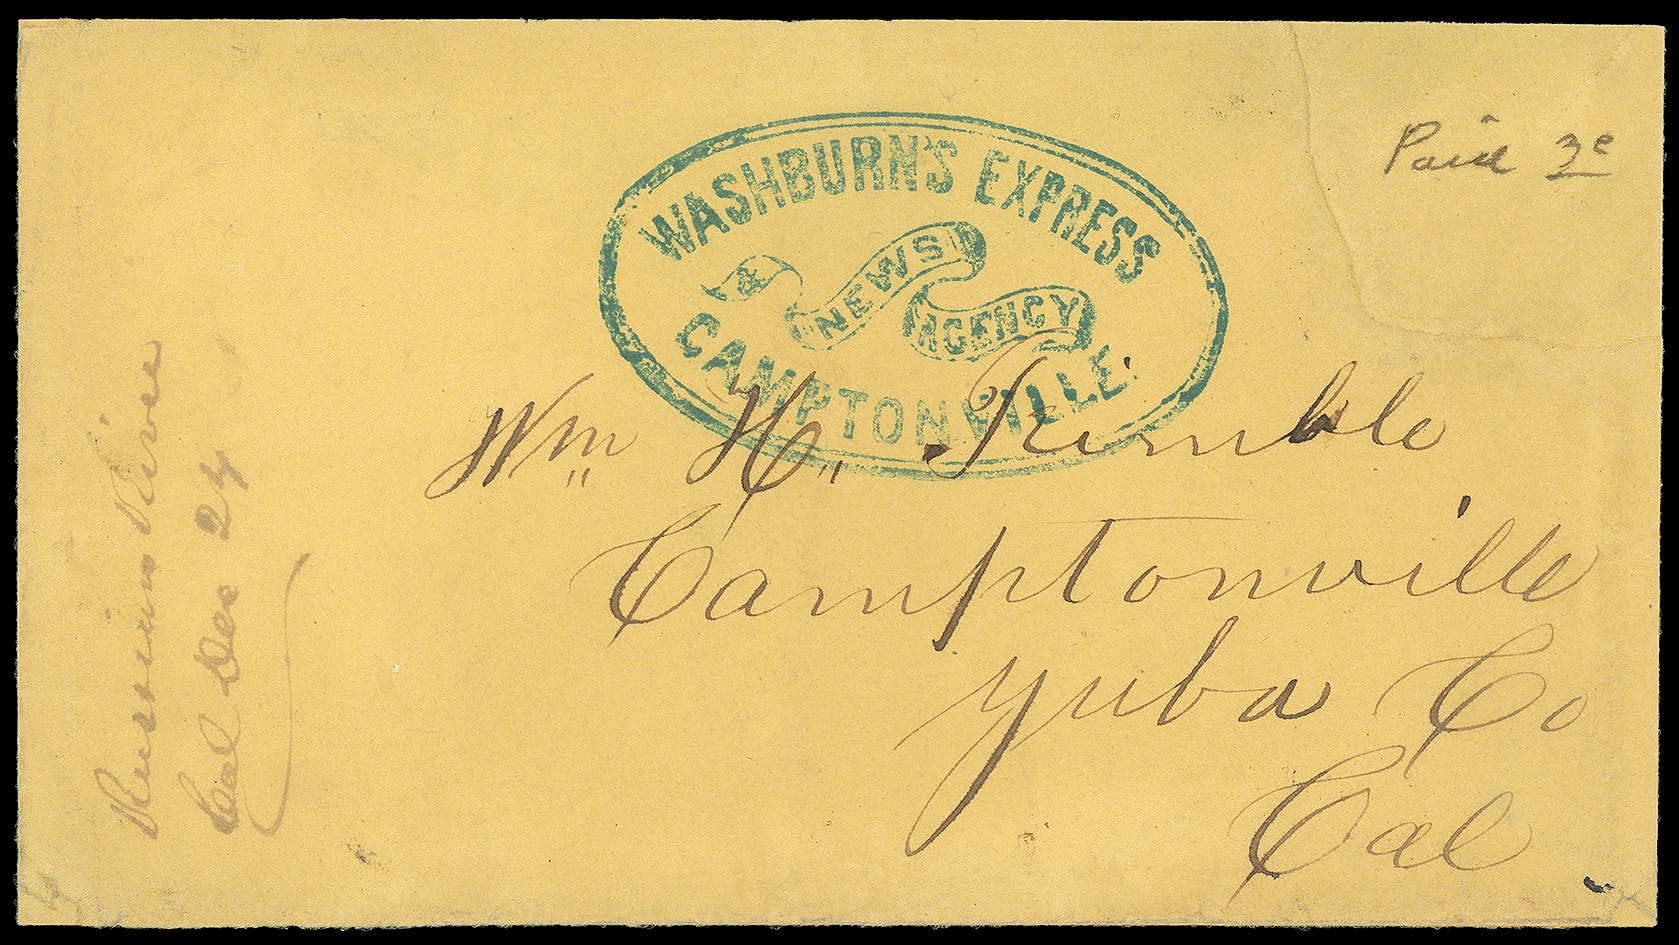 WASHBURN'S EXPRESS
& NEWS AGENCY
CAMPTONVILLE.
Paid 3c
Wm H. Trimble
Camptonville
Yuba Co
Cal
Russian River
Cal Dec 24